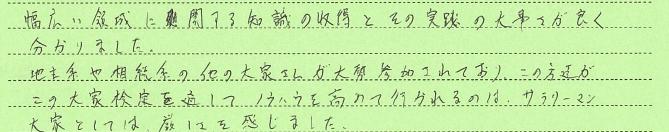 幅広い領域に関する知識の収得とその実践の大事さが良く
分かりました。
地主系や相続系の他の大家さんが大勢参加されており、この方達が
この大家検定を通してノウハウを高めて行かれるのは、サラリーマン
大家としては、厳しさを感じました。